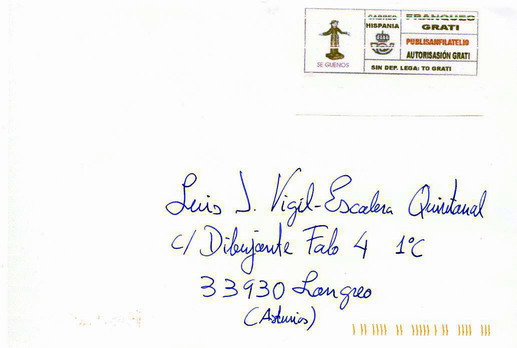 CABREO
HISPANIA
FRANQUEO
GRATI
PUBLISAMFILATELIO
AUTORISASIÓN GRATI
SE GUENOS
SIN DEP. LEGA: TO GRATI
Luis J. Vigil-Escalera Quintanal
c/ Dibujante Falo 4 1ºC
33930 Langreo
(Asturias)